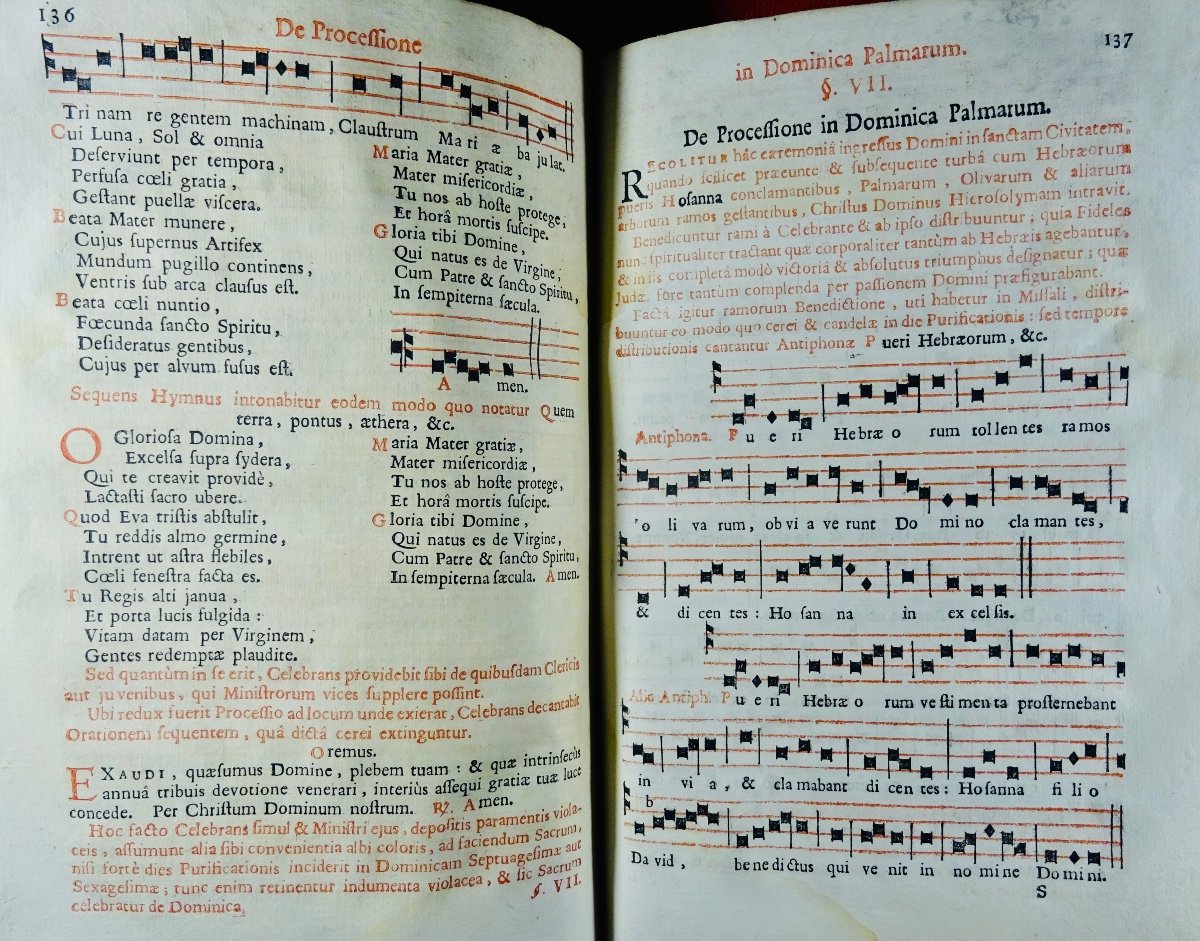 136
De Processione
Tri nam re gentem machinam, Claustrum Ma ri æ ba ju lat.
Cui Luna, Sol & omnia
Deserviunt per tempora,
Perfusa cœli gratia,
Gestant puellæ viscera.
Beata Mater munere,
Cujus supernus Artifex
Mundum pugillo continens,
Ventris sub arca clausus est.
Beata cœli nuntio,
Fœcunda sancto Spiritu,
Desideratus gentibus,
Cujus per alvum fusus est.
Maria Mater gratiæ,
Mater misericordiæ,
Tu nos ab hoste protege,
Et horâ mortis suscipe.
Gloria tibi Domine,
Qui natus es de Virgine,
Cum Patre & sancto Spiritu,
In sempiterna sæcula.
A men.
Sequens Hymnus intonabitur eodem modo quo notatur Quem
terra, pontus, æthera, &c.
O Gloriosa Domina,
Excelsa supra sydera,
Qui te creavit providè,
Lactasti sacro ubere.
Quod Eva tristis abstulit,
Tu reddis almo germine,
Intrent ut astra flebiles,
Cœli fenestra facta es.
Tu Regis alti janua,
Et porta lucis fulgida:
Vitam datam per Virginem,
Gentes redemptæ plaudite.
Maria Mater gratiæ,
Mater misericordiæ,
Tu nos ab hoste protege,
Et horâ mortis suscipe.
Gloria tibi Domine,
Qui natus es de Virgine,
Cum Patre & sancto Spiritu,
In sempiterna sæcula. Amen.
Sed quantùm in se erit, Celebrans providebit sibi de quibusdam Clericis
aut juvenibus, qui Ministrorum vices supplere possint.
Ubi redux fuerit Processio ad locum unde exierat, Celebrans decantabit
Orationem sequentem, quâ dictâ cerei extinguntur.
Oremus.
EXAUDI, quæsumus Domine, plebem tuam: & quæ intrinsecùs
annuâ tribuis devotione venerari, interiùs assequi gratiæ tuæ luce
concede. Per Christum Dominum nostrum. ℟. Amen.
Hoc facto Celebrans simul & Ministri ejus, depositis paramentis viola-
ceis, assumunt alia sibi convenientia albi coloris, ad faciendum Sacrum,
nisi fortè dies Purificationis inciderit in Dominicam Septuagesimæ aut
Sexagesimæ; tunc enim retinentur indumenta violacea, & sic Sacrum
celebratur de Dominica.
§. VII.
137
in Dominica Palmarum.
§. VII.
De Processione in Dominica Palmarum.
RECOLITUR hâc cæremoniâ ingressus Domini in sanctam Civitatem,
quando scilicet præeunte & subsequente turbâ cum Hebræorum
pueris Hosanna conclamantibus, Palmarum, Olivarum & aliarum
arborum ramos gestantibus, Christus Dominus Hierosolymam intravit.
Benedicuntur rami à Celebrante & ab ipso distribuuntur; quia Fideles
nunc spiritualiter tractant quæ corporaliter tantùm ab Hebræis agebantur,
& in iis completâ modò victoriâ & absolutus triumphus designatur; quæ
Judæ. fore tantùm complenda per passionem Domini præfigurabant.
Factâ igitur ramorum Benedictione, uti habetur in Missali, distri-
buuntur eo modo quo cerei & candelæ in die Purificationis: sed tempore
distributionis cantantur Antiphonæ Pueri Hebræorum, &c.
Antiphona. P u e ri Hebræ o rum tol len tes ra mos
o li va rum, ob vi a ve runt Do mi no cla man tes,
& di cen tes: Ho san na in ex cel sis.
Alia Antiph. P u e ri Hebræ o rum ve sti men ta prosternebant
in vi a, & cla mabant di cen tes: Hosanna fi li o
b
Da vid, be ne dictus qui ve nit in no mine Do mi ni.
S